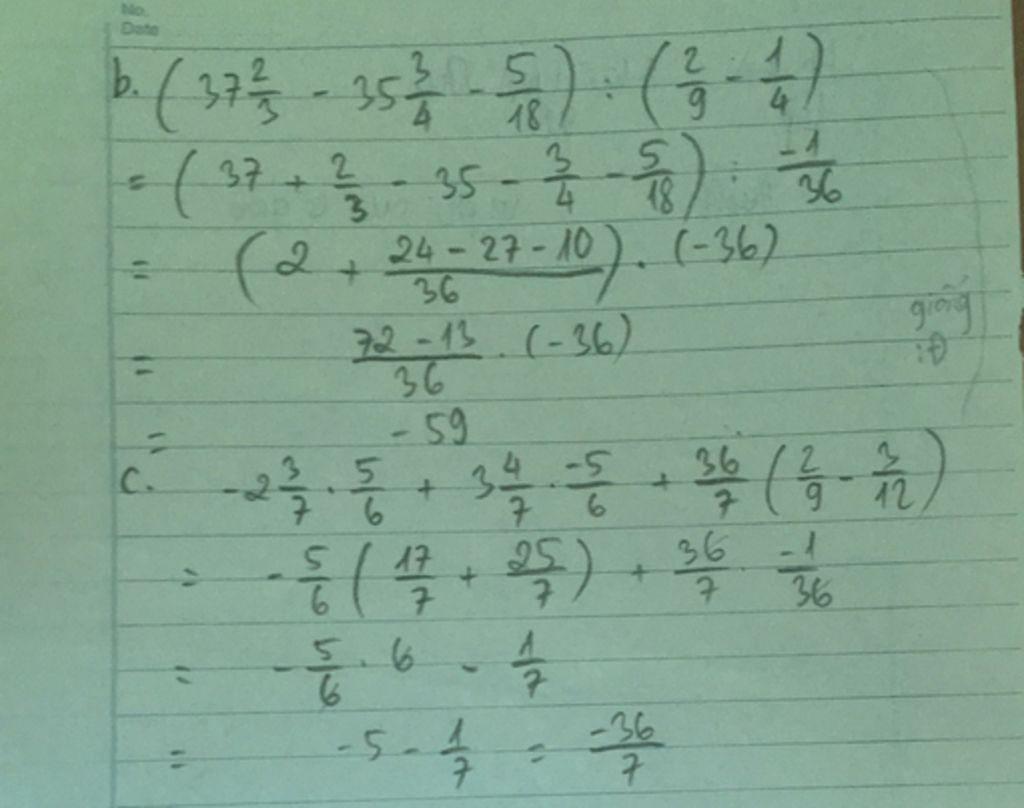 No.
Date
b. (37 2/3 - 35 3/4 - 5/18) : (2/9 - 1/4)
= (37 + 2/3 - 35 - 3/4 - 5/18) : -1/36
= (2 + (24 - 27 - 10)/36) . (-36)
= (72 - 13)/36 . (-36)
giống
:Đ
= - 59
c. -2 3/7 . 5/6 + 3 4/7 . -5/6 + 36/7 (2/9 - 3/12)
= - 5/6 (17/7 + 25/7) + 36/7 . -1/36
= - 5/6 . 6 - 1/7
= -5 - 1/7 = -36/7